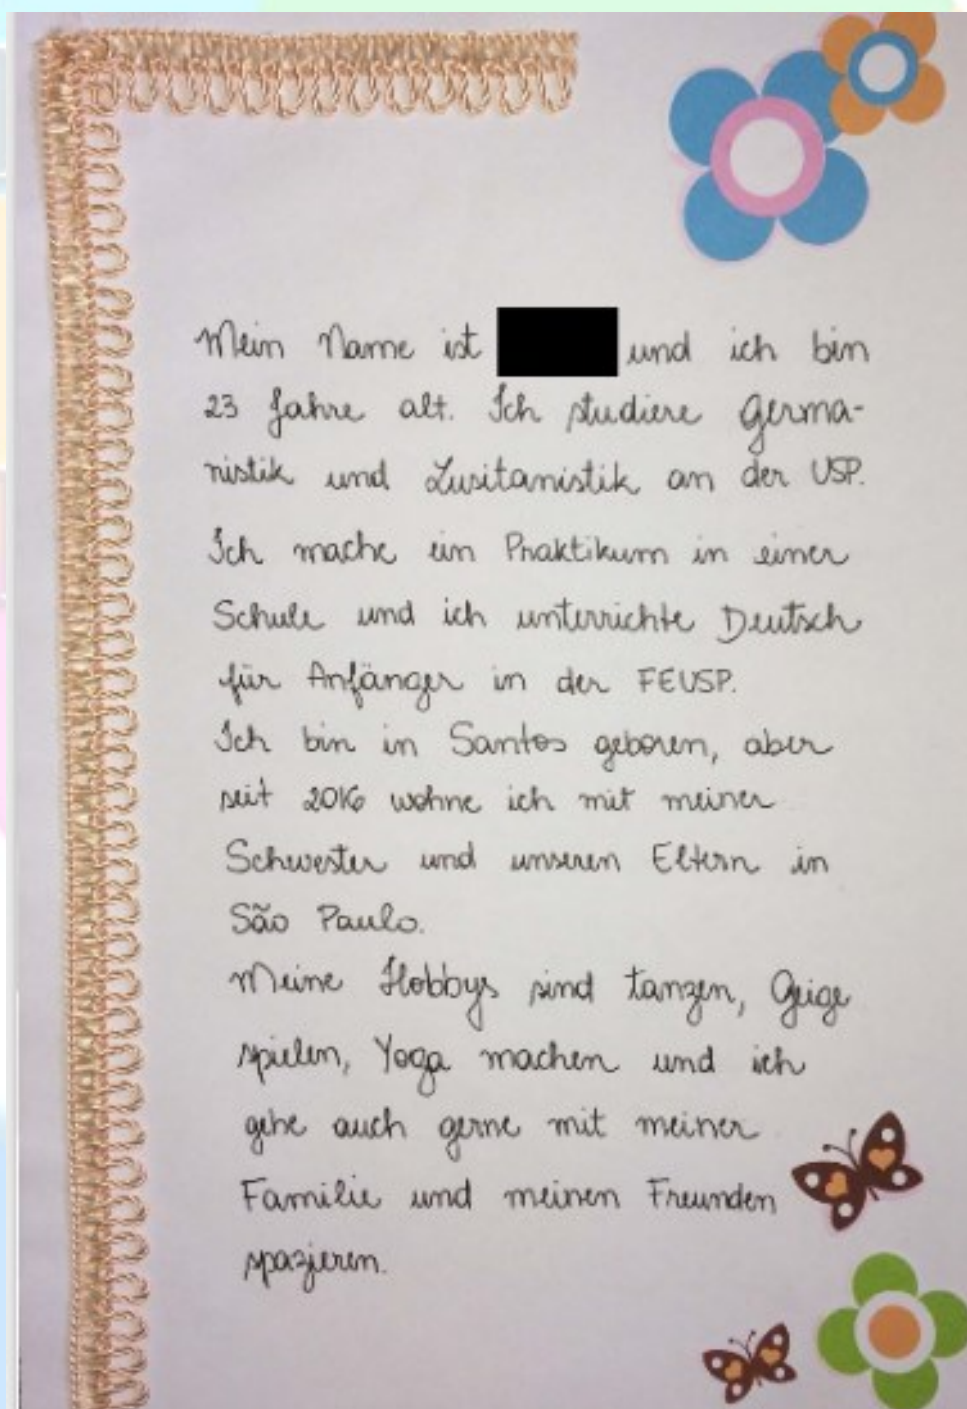 Mein Name ist und ich bin
23 Jahre alt. Ich studiere Germa-
nistik und Lusitanistik an der USP.
Ich mache ein Praktikum in einer
Schule und ich unterrichte Deutsch
für Anfänger in der FEUSP.
Ich bin in Santos geboren, aber
seit 2016 wohne ich mit meiner
Schwester und unseren Eltern in
São Paulo.
Meine Hobbys sind tanzen, Geige
spielen, Yoga machen und ich
gehe auch gerne mit meiner
Familie und meinen Freunden
spazieren.